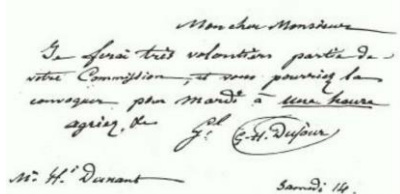 Mon cher Monsieur
Je ferai très volontiers partie de
votre Commission, et vous pourriez la
convoquer pour mardi à une heure
agriez, &c
Gal G. H. Dufour
Mr. Hi Dunant Samedi 14.